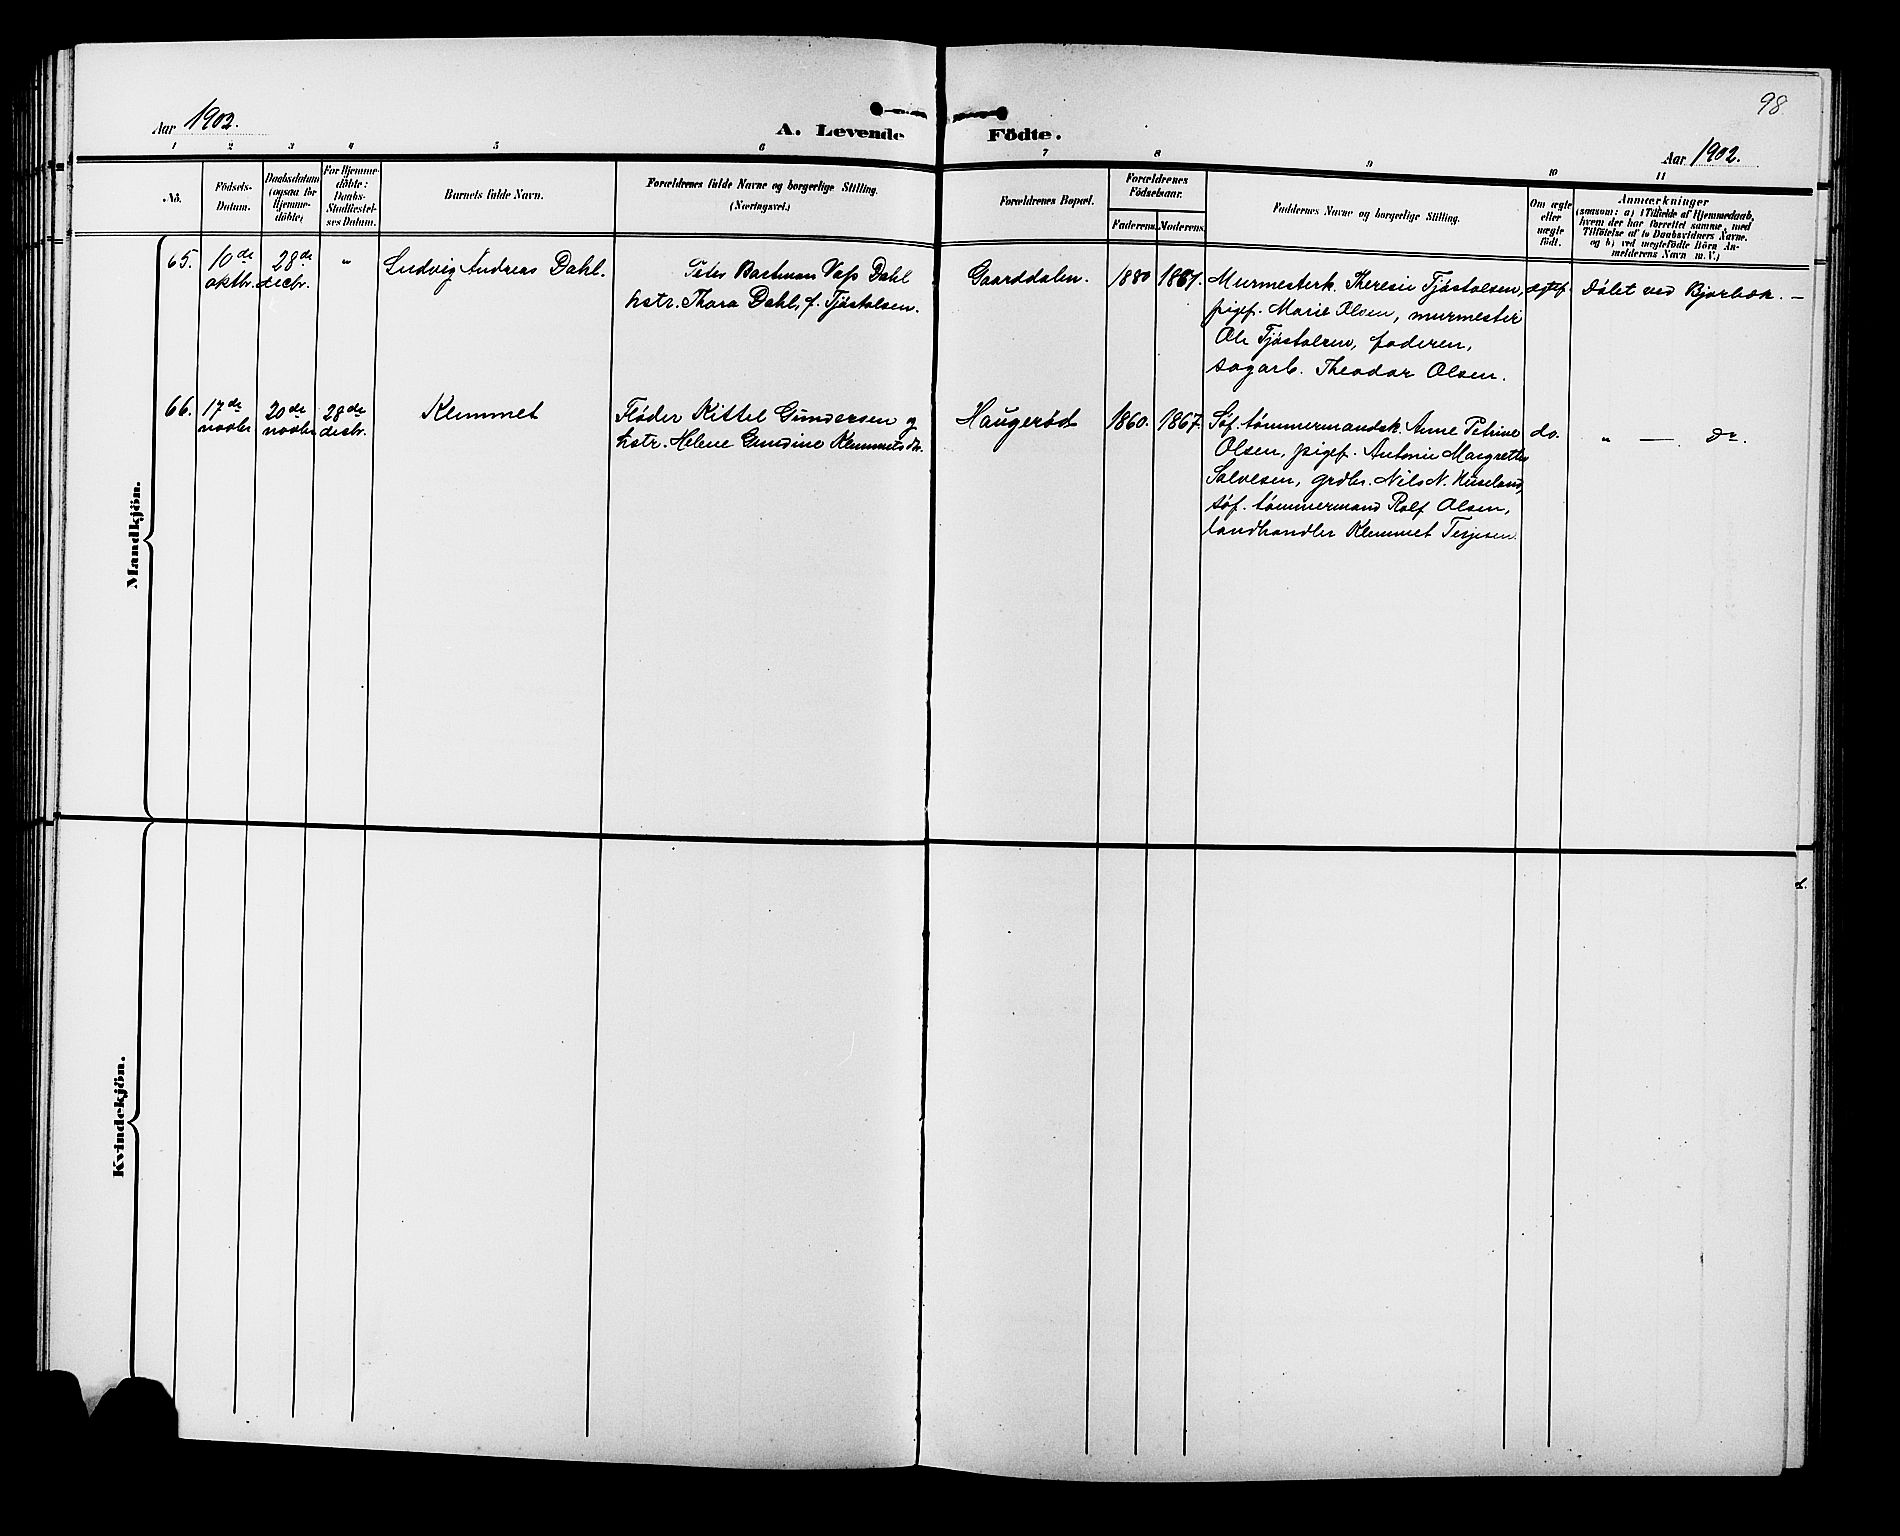 98
Aar 1902.
A. Levende Födte.
Aar 1902.
1 2 3 4 5 6 7 8 9 10 11
No.
Födsels-
Datum.
Daabsdatum
(ogsaa for
Hjemme-
döbte)
For Hjemme-
döbte:
Daabs-
Stadfæstel-
ses Datum.
Barnets fulde Navn.
Forældrenes fulde Navne og borgerlige Stilling.
(Næringsvei.)
Forældrenes Bopæl.
Forældrenes
Födselsaar.
Faderens.
Moderens.
Faddernes Navne og borgerlige Stilling.
Om ægte
eller
uægte
födt.
Anmærkninger
(saasom: a) i Tilfælde af Hjemmedaab,
hvem der har forrettet samme, med
Tilföielse af to Daabsvidners Navne,
og b) ved uægtefödte Börn An-
melderens Navn m. V.)
Mandkjön.
65.
10de
oktbr.
28de
decbr.
"
Ludvig Andreas Dahl.
Peter Bastman Dahl
hstr. Thora Dahl, f. Tjøstolsen.
Gaarddalen.
1880
1881.
Murmesterk. Theresie Tjøstolsen,
pigef. Marie Olsen, murmester
Ole Tjøstolsen, faderen,
sagarb. Theodor Olsen.
ægtef.
Døbt ved Bjorbæk. –
66.
17de
novbr.
20de
novbr.
28de
decbr.
Klemmet
Fløder Kittel Gundersen og
hstr. Helene Gundine Klemmetsdtr.
Haugerød
1860.
1867.
Søf. tømmermandsk. Anne Petrine
Olsen, pigef. Antonie Margrethe
Salvesen, grdbr. Nils N. Huseland,
søf. tømmermand Rolf Olsen,
landhandler Klemmet Terjesen.
do.
" — do.
Kvindekjön.